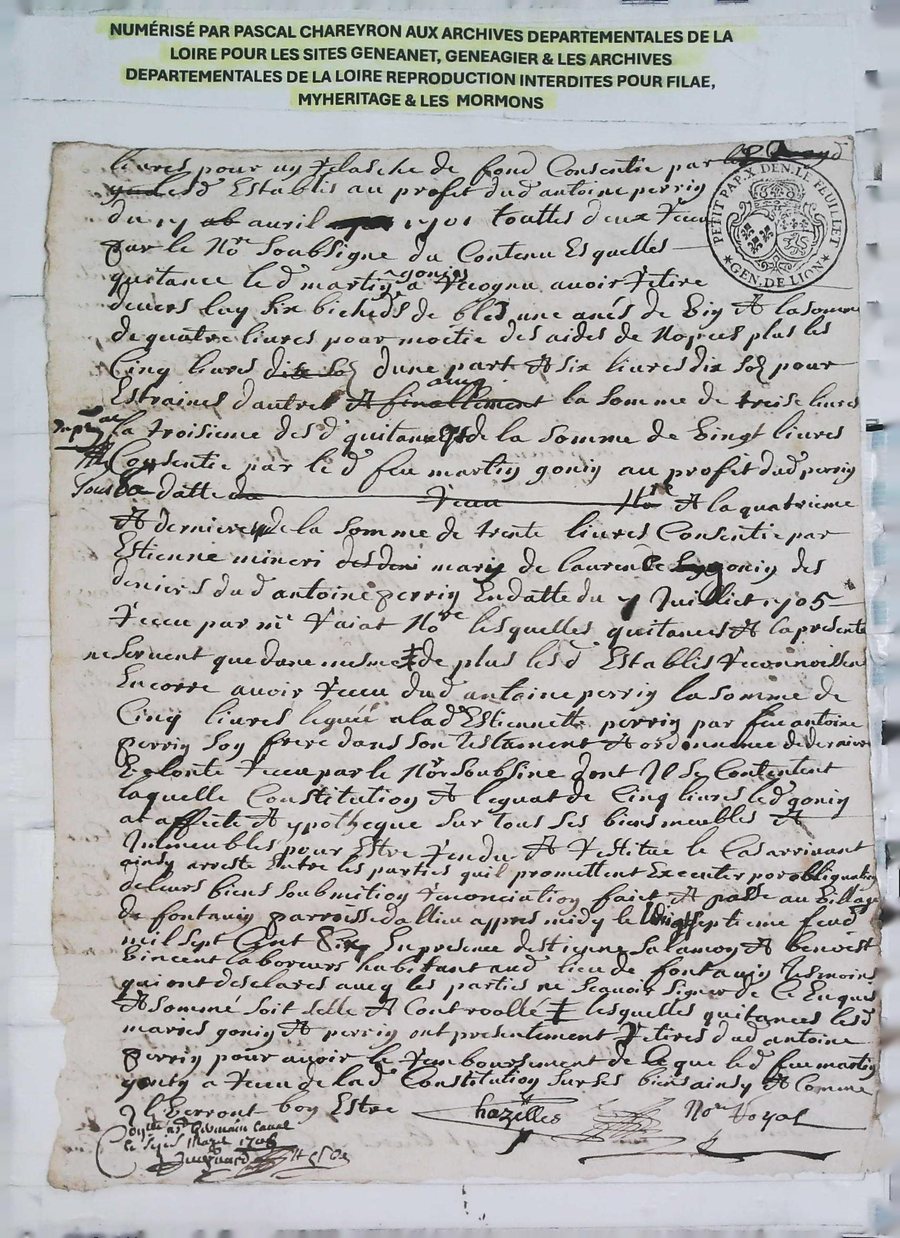 NUMÉRISÉ PAR PASCAL CHAREYRON AUX ARCHIVES DEPARTEMENTALES DE LA
LOIRE POUR LES SITES GENEANET, GENEAGIER & LES ARCHIVES
DEPARTEMENTALES DE LA LOIRE REPRODUCTION INTERDITES POUR FILAE,
MYHERITAGE & LES MORMONS
livres pour un relasche de fond Consentie par
Establis au profit dud antoine perrin
du 17 avril 1701 touttes deux receu
PETIT PAP. X DEN. LE FEUILLET
GEN. DE LION
par le No.re soubsigne du Contenu Esquelles
quitance led martin gonin a recogneu avoir retire
devers luy six bicheds de bled une anée de vin et la somme
de quatre livres pour moctie des aides de nopces plus les
Cinq livres dune part et six livres dix solz pour
Estraines dautres la somme de treise livres
la troisieme des d quitances de la somme de vingt livres
Consentie par led feu martin gonin au profit dud perrin
soubz datte receu No.re et la quatrieme
et derniere de la somme de trente livres Consentie par
Estienne mineri mary de laurence gonin des
deniers dud antoine perrin En datte du 7 Juillet 1705
receu par m.e No.re lesquelles quitances et la presente
ne servent que dune mesme de plus lesd Establis reconnoissent
Encorre avoir receu dud antoine perrin la somme de
Cinq livres leguée a lad Estiennette perrin par feu antoine
perrin son frere dans son testament et ordonnance de derniere
volonté receu par le No.re soubsine dont Il se Contentent
laquelle Constitution et leguat de Cinq livres led gonin
a affecté et ypotheque sur tous ses biens meubles et
Immeubles pour Estre rendu et restitue le Cas arrivant
ainsy arresté Entre les parties quil promettent Executer par obligation
de leurs biens soubmition renonciation fait et passé au village
de fontanin parroisse dallieu appres midy le septieme feud
mil sept Cent Six En presence destienne salamon et benoist
vincent laboreurs habitant aud lieu de fontanin tesmoins
qui ont desclares avec les parties ne sçavoir signer de Ce Enquis
et sommé soit selle et Controollé lesquelles quitances lesd
maries gonin et perrin ont presentement retires dud antoine
perrin pour avoir le remboursement de Ce que led feu martin
gonin a receu de lad Constitution sur ses biens ainsy et Comme
Il Verront bon Estre Chazelles No.re Royal